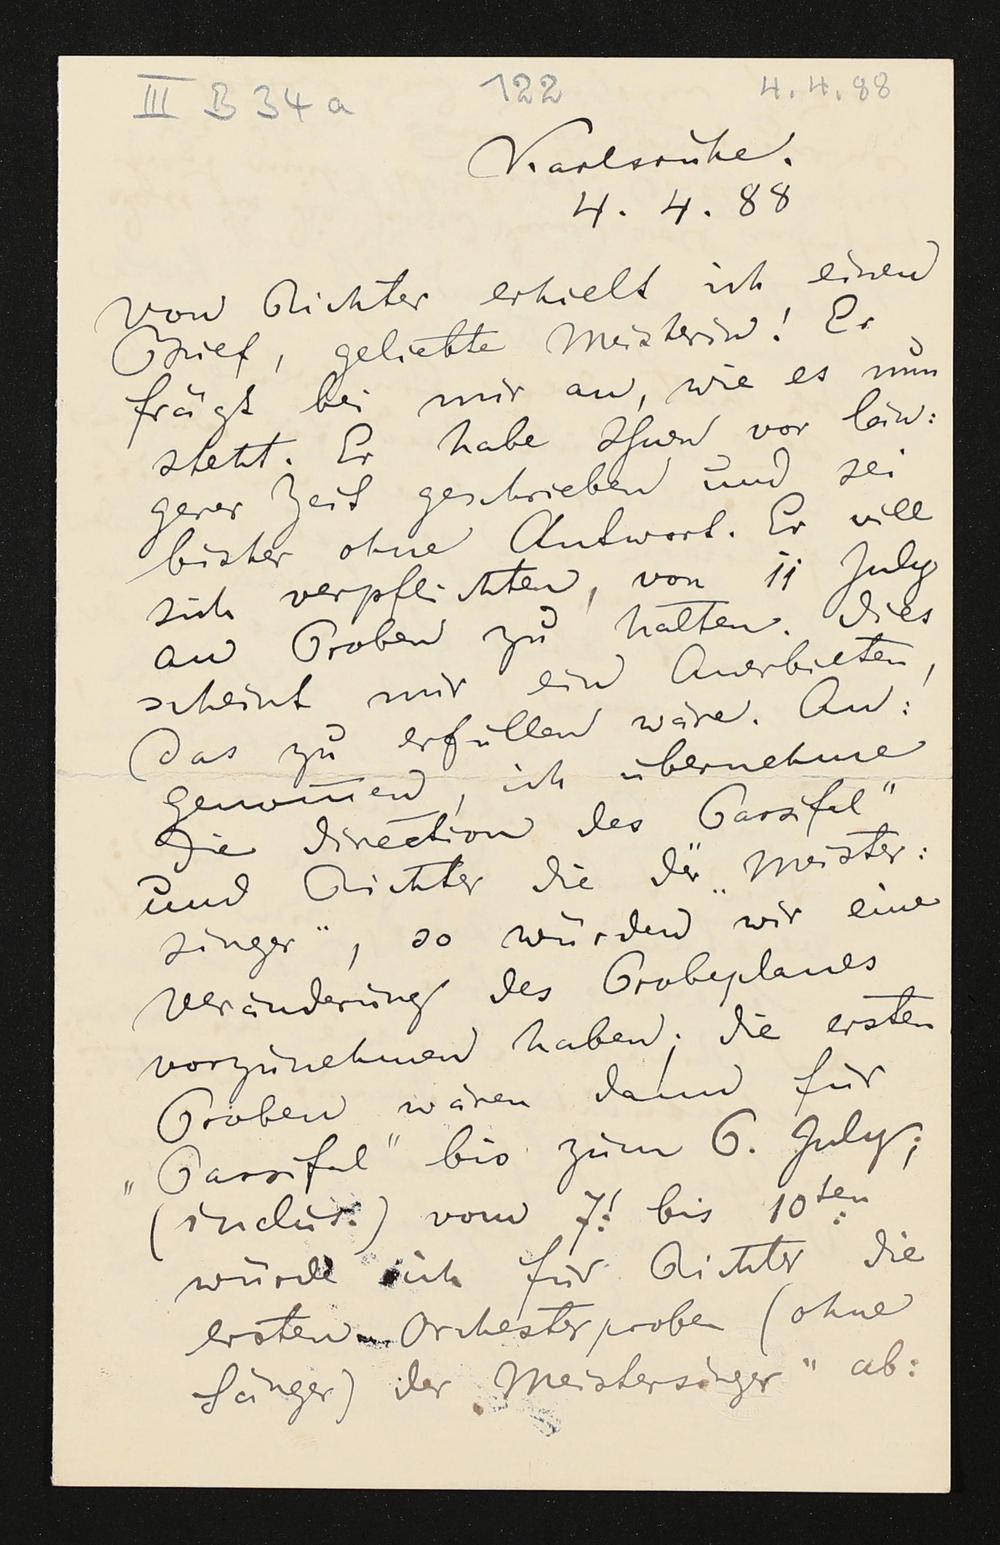 III B 34 a 122 4.4.88
Karlsruhe.
4. 4. 88
Von Richter erhielt ich einen
Brief, geliebte Meisterin! Er
frägt bei mir an, wie es nun
steht. Er habe Ihnen vor län:
gerer Zeit geschrieben und sei
bisher ohne Antwort. Er will
sich verpflichten, von 11 July
an Proben zu halten. Dies
scheint mir ein Anerbieten,
das zu erfüllen wäre. An:
genom̅en, ich übernehme
die Direction des Parsifal"
und Richter die der „Meister:
singer", so würden wir eine
Veränderung des Probeplanes
vorzunehmen haben; die ersten
Proben wären dann für
"Parsifal" bis zum 6. July;
(inclus.) vom 7! bis 10ten
würde ich für Richter die
ersten Orchesterproben (ohne
Sänger) der „Meistersinger" ab: